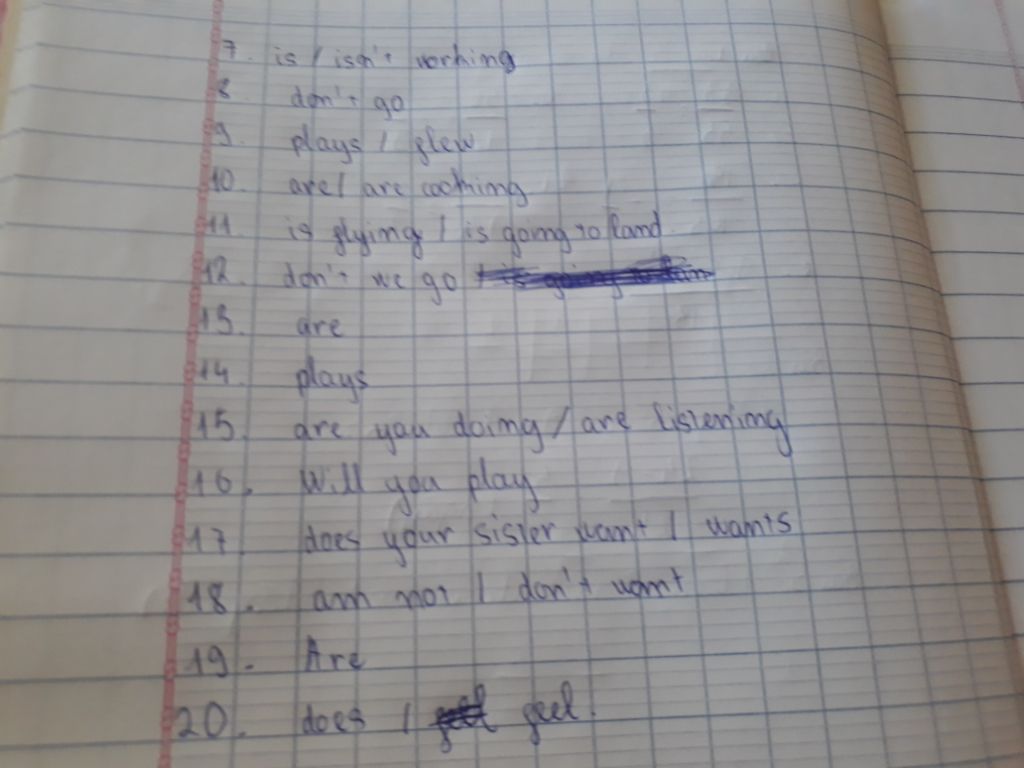 7. is / isn't working
8 don't go
9. plays / flew
10. are / are cooking
11. is flying / is going to land.
12. don't we go
13. are
14. plays
15. are you doing / are listening
16. Will you play
17 does your sister want / wants
18. am not / don't want
19. Are
20. does / feel.